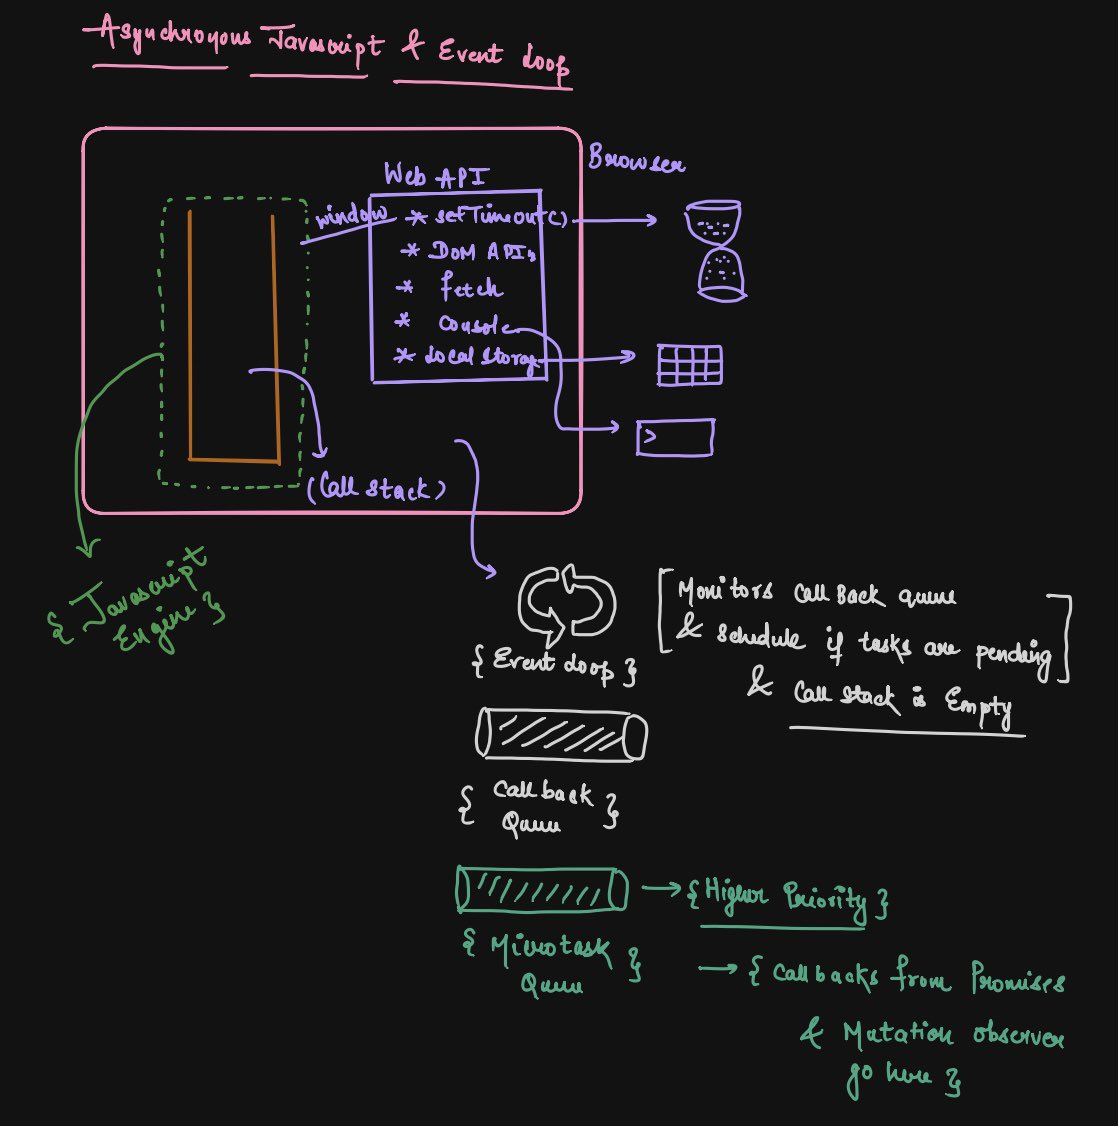 Asynchronous Javascript & Event Loop
Browser
Web API
window
* setTimeout()
* DOM APIs
* fetch
* Console
* Local Storage
>
(Call Stack)
{ Javascript
Engine }
{ Event Loop }
[ Monitors Call Back queue
& Schedule if tasks are pending ]
& Call Stack is Empty
{ Callback
Queue }
{ Higher Priority }
{ Microtask
Queue }
{ Callbacks from Promises
& Mutation observer
go here }